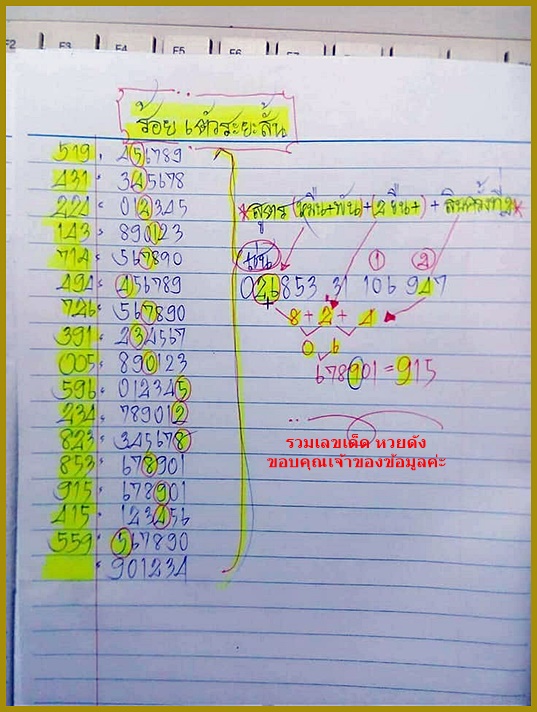 F2 F3 F4 F5 F6
ร้อย 6 ตัวระยะสั้น
519 = 456789
431 = 345678
224 = 012345
143 = 890123
714 = 567890
494 = 456789
746 = 567890
391 = 234567
005 = 890123
596 = 012345
234 = 789012
823 = 345678
853 = 678901
915 = 678901
415 = 123456
559 = 567890
= 901234
*สูตร (หมื่น+พัน)+(2 +) + สิบครั้งที่2*
เช่น
① ②
026853 31 106 947
8 + 2 + 4
0 6
678901 = 915
รวมเลขเด็ด หวยดัง
ขอบคุณเจ้าของข้อมูลค่ะ